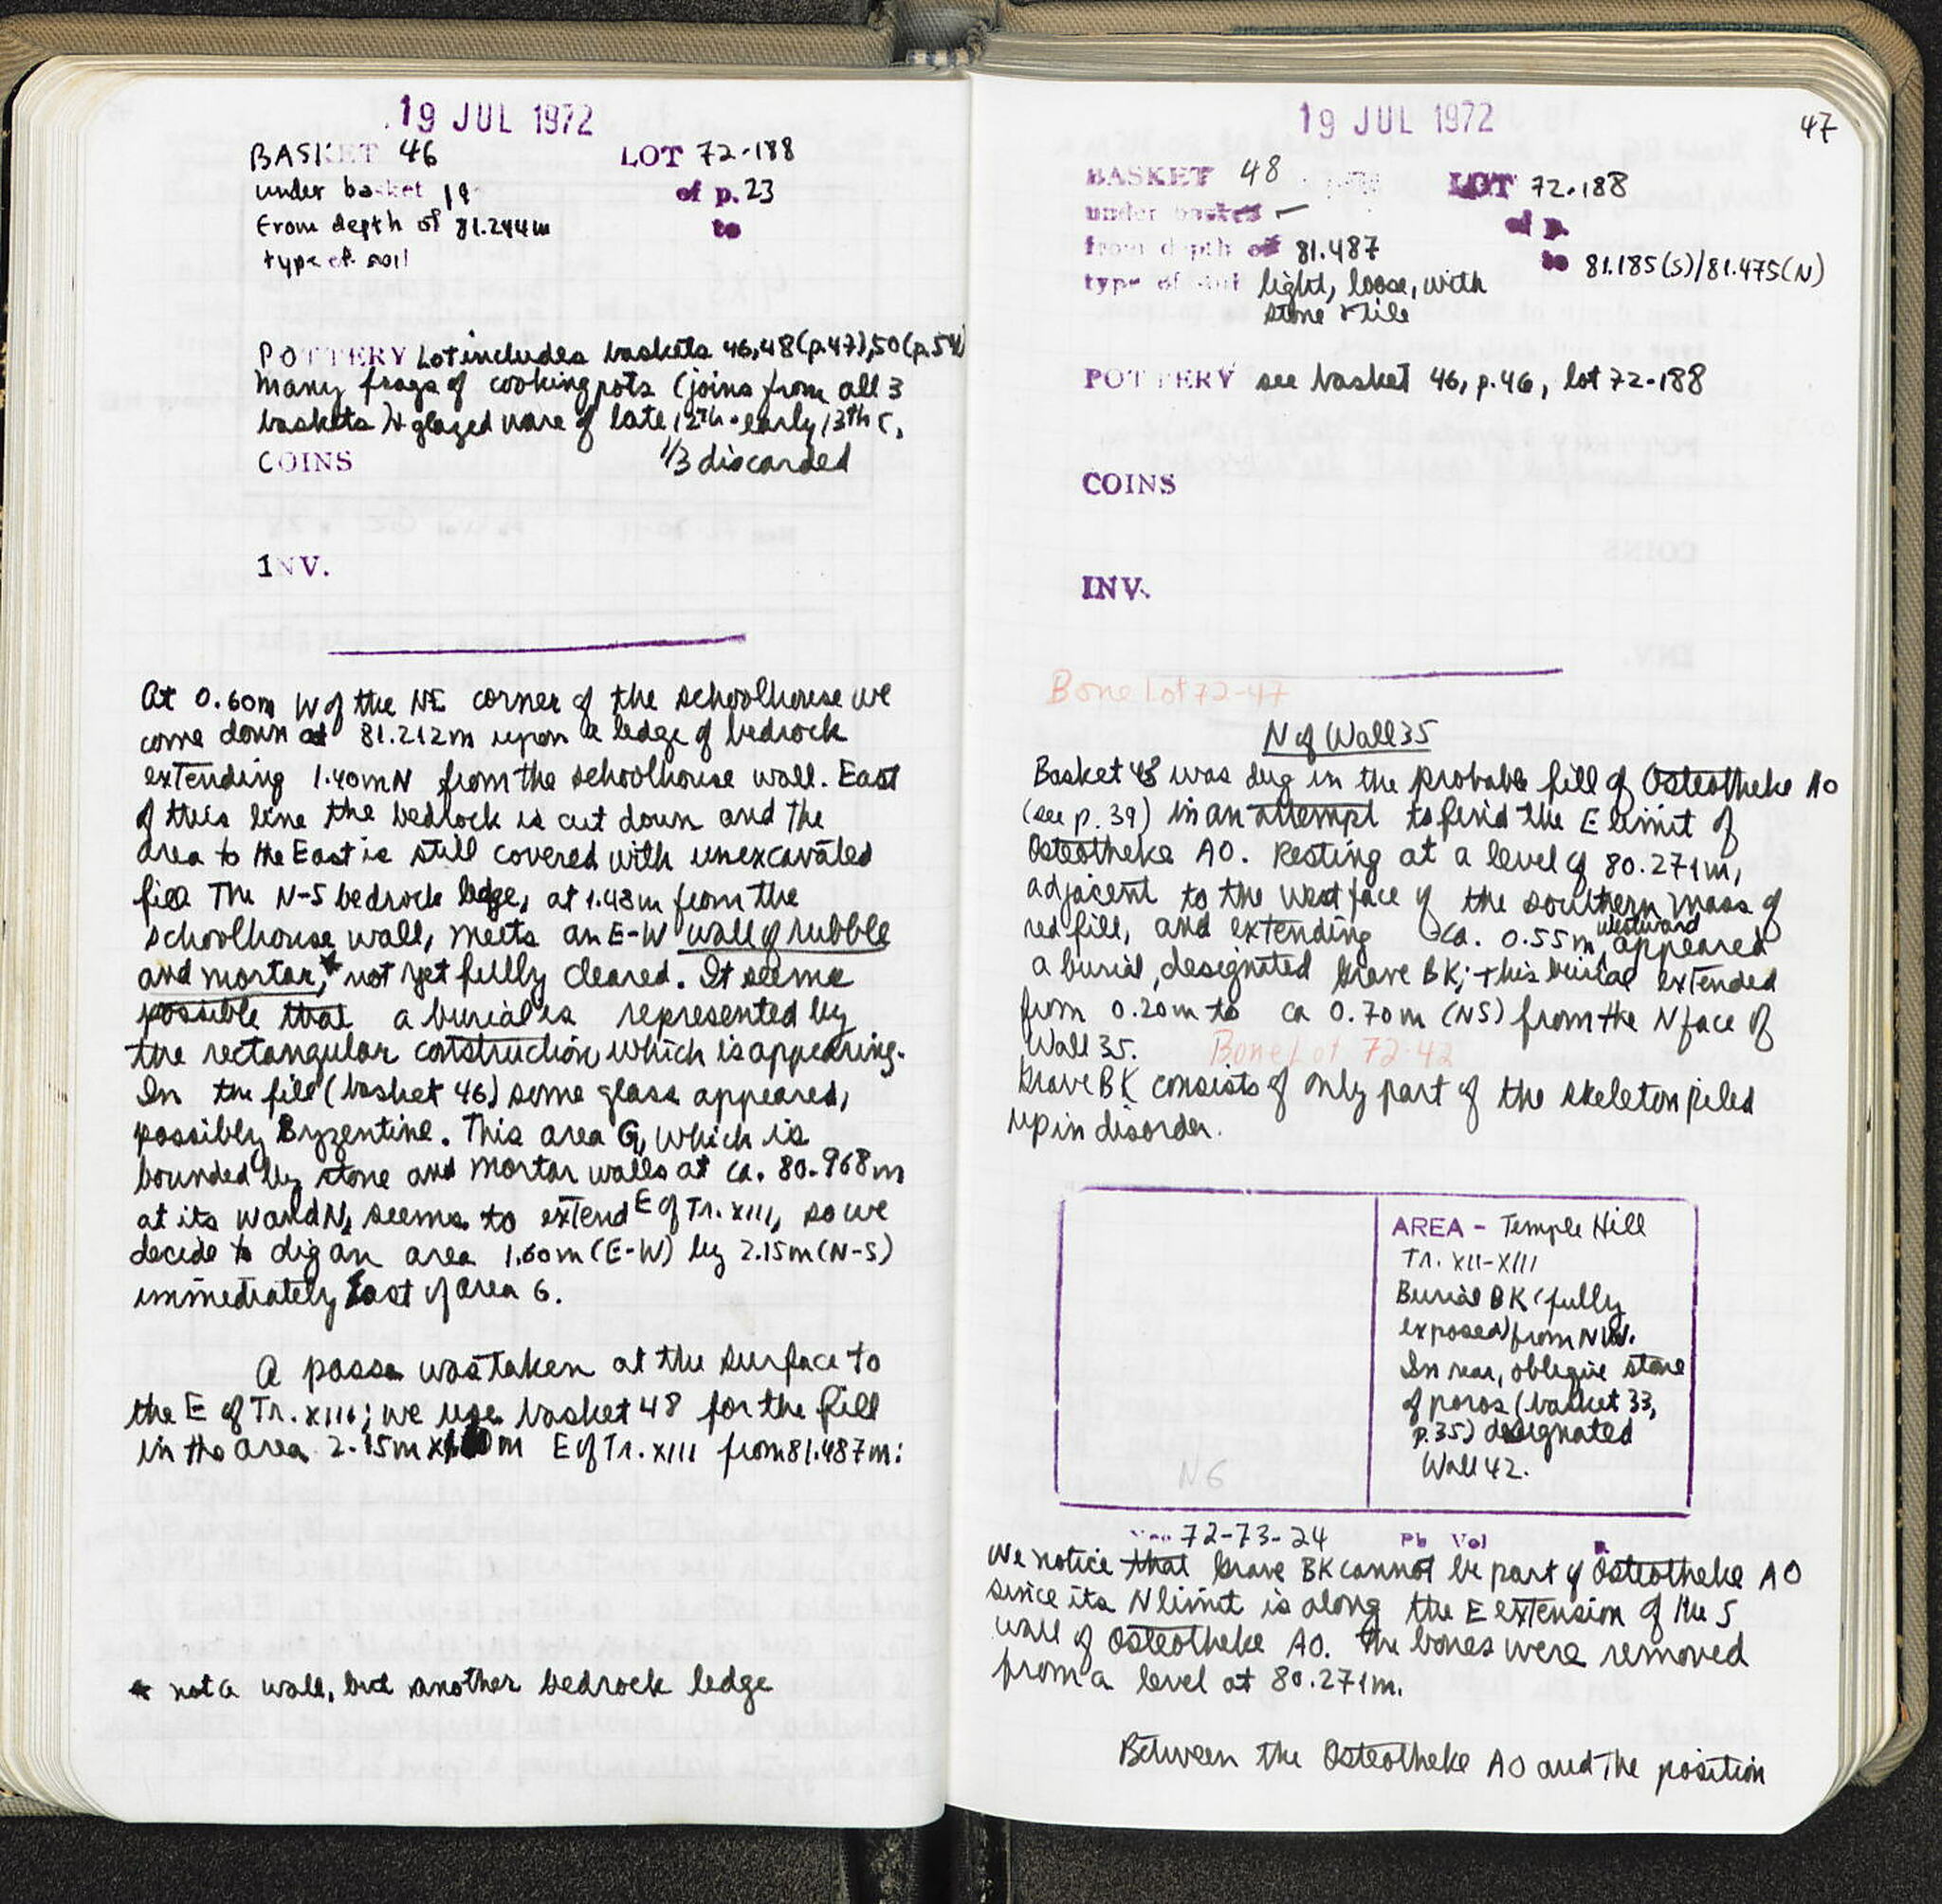 19 JUL 1972
BASKET 46 LOT 72-188
under basket 19 of p. 23
From depth of 81.244m to
type of soil
POTTERY Lot includes baskets 46,48(p.47),50(p.54)
Many frags of cooking pots (joins from all 3
baskets) + glazed ware of late 12th - early 13th c.
COINS 1/3 discarded
INV.
At 0.60m W of the NE corner of the schoolhouse we
come down at 81.212m upon a ledge of bedrock
extending 1.40m N from the schoolhouse wall. East
of this line the bedrock is cut down and the
area to the East is still covered with unexcavated
fill The N-S bedrock ledge, at 1.48m from the
schoolhouse wall, meets an E-W wall of rubble
and mortar,* not yet fully cleared. It seems
possible that a burial is represented by
the rectangular construction which is appearing.
In the fill (basket 46) some glass appeared,
possibly Byzentine. This area G, which is
bounded by stone and mortar walls at ca. 80.968m
at its W and N, seems to extend E of Tr. XIII, so we
decide to dig an area 1.60m (E-W) by 2.15m (N-S)
immediately East of area G.
A passa was taken at the surface to
the E of Tr. XIII; we use basket 48 for the fill
in the area 2.15m x m E of Tr. XIII from 81.487m:
* not a wall, but another bedrock ledge
19 JUL 1972 47
BASKET 48 LOT 72-188
under basket — of p.
from depth of 81.487 to 81.185(S)/81.475(N)
type of soil light, loose, with
stone & tile
POTTERY see basket 46, p.46, lot 72-188
COINS
INV.
Bone Lot 72-47
N of Wall 35
Basket 48 was dug in the probable fill of Osteotheke AO
(see p. 39) in an attempt to find the E limit of
Osteotheke AO. Resting at a level of 80.271m,
adjacent to the west face of the southern mass of
red fill, and extending ca. 0.55m westward, appeared
a burial, designated Grave BK; this burial extended
from 0.20m to ca 0.70m (NS) from the N face of
Wall 35. Bone Lot 72-42
Grave BK consists of only part of the skeleton piled
up in disorder.
AREA - Temple Hill
Tr. XII-XIII
Burial BK (fully
exposed) from NW.
In rear, oblique stone
of poros (basket 33,
p.35) designated
Wall 42.
N6
72-73-24 Pb Vol
We notice that Grave BK cannot be part of Osteotheke AO
since its N limit is along the E extension of the S
wall of Osteotheke AO. The bones were removed
from a level at 80.271m.
Between the Osteotheke AO and the position